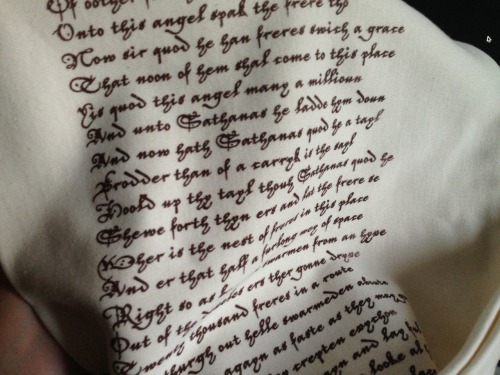 Of oother
Onto this angel spak the frere tho
Now sir quod he han freres swich a grace
That noon of hem shal come to this place
Yis quod this angel many a millioun
And unto Sathanas he ladde hym doun
And now hath Sathanas quod he a tayl
Brodder than of a carryk is the sayl
Hoold up thy tayl thouh Sathanas quod he
Shewe forth thyn ers and lat the frere se
Wher is the nest of freres in this place
And er that half a forlong wey of space
Right so as bees swarmen from an hyve
Out of the develes ers ther gonne dryve
Twenty thousand freres in a route
thurgh out helle swarmeden aboute
agayn as faste as they may
crepten everychon
agayn and lay
looke al